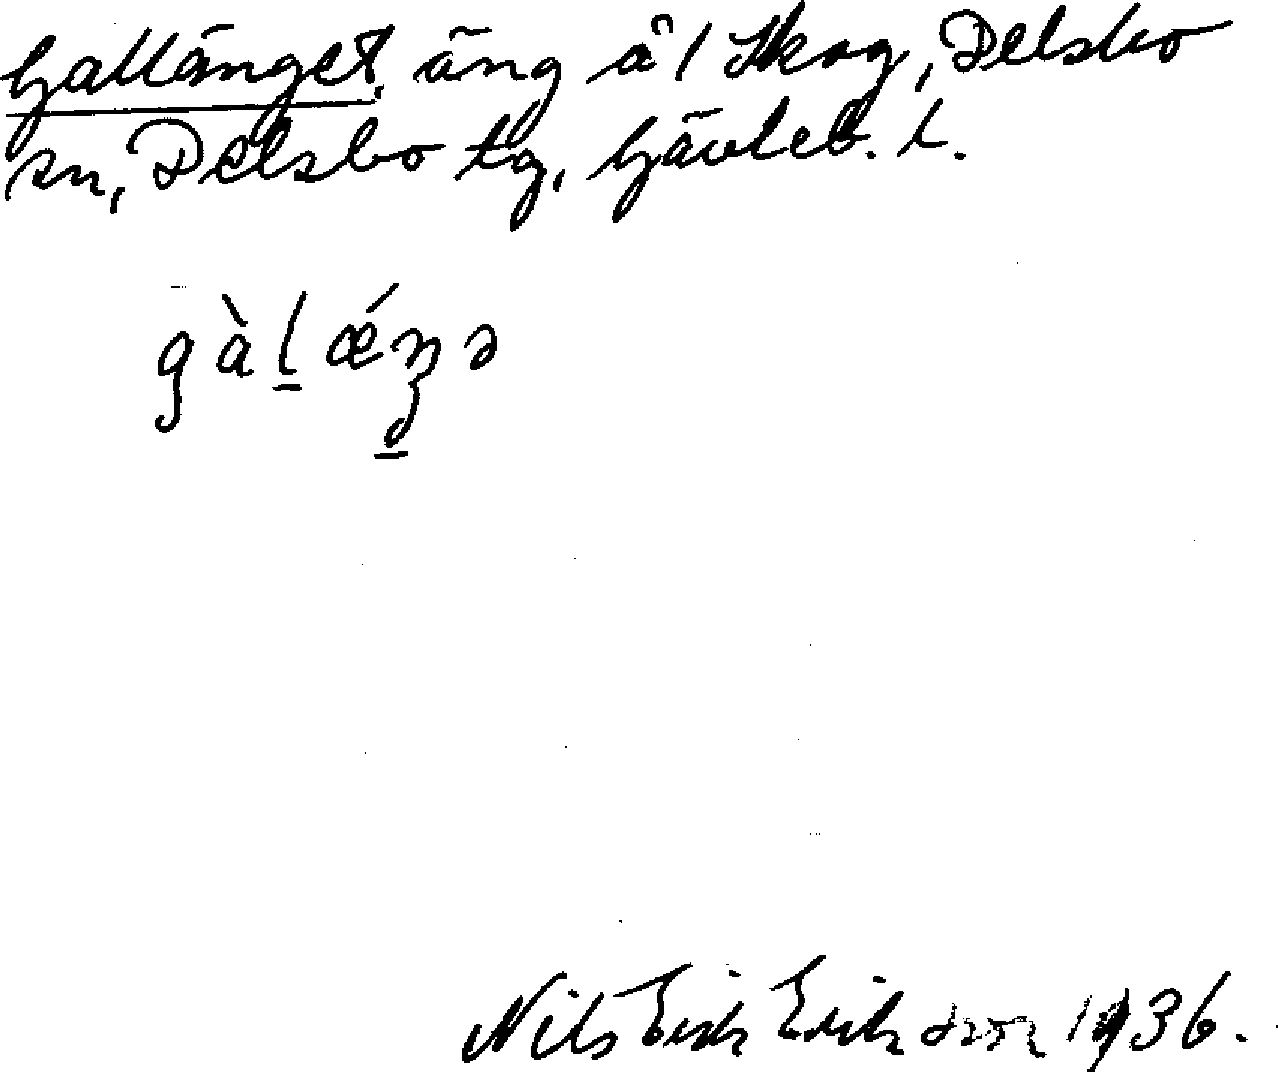 Gallänget, äng å 1 Skog, Delsbo
sn, Delsbo tg, Gävleb. l.
gàl̲ǽŋ̲ə
Nils Erik Eriksson 1936.